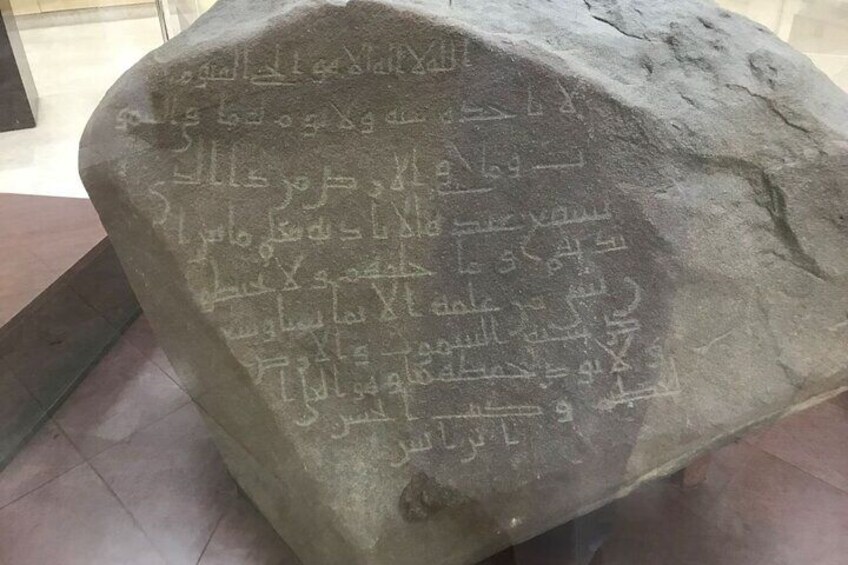 الله لا اله الا هو الحي القيوم
لا تاخذه سنه ولا نوم له ما في السمو
ت وما في الارض من ذا الذي
يشفع عنده الا باذنه يعلم ما بين ا
يديهم وما خلفهم ولا يحيطو
ن بشي من علمه الا بما شا وسع
كرسيه السموت والارض
ولا يوده حفظهما وهو العلي ا
لعظيم وكتب